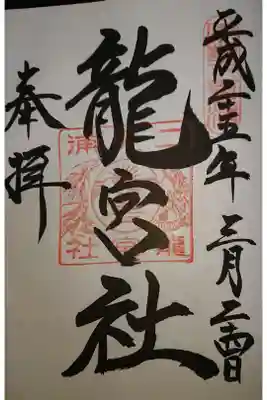 平成二十五年三月二十四日
龍宮社
奉拝